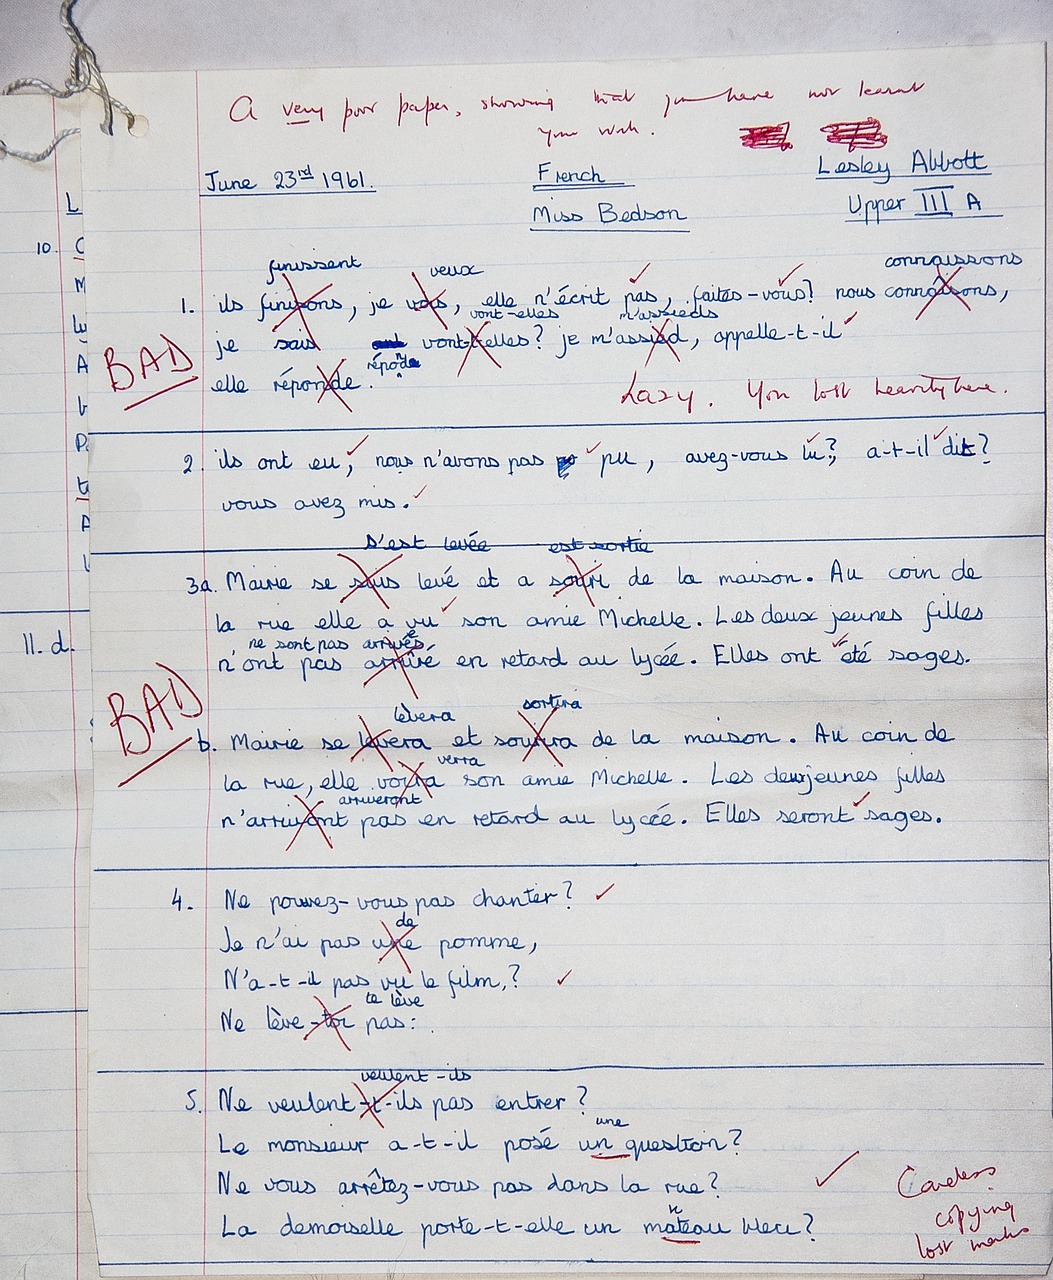 A very poor paper, showing that you have not learnt
your work.
June 23rd 1961.
French
Lesley Abbott
Miss Bedson
Upper III A
finissent veux connaissons
1. ils finisons, je vois, elle n'écrit pas, faites-vous? nous connaisons,
vont-elles m'assieds
je sais vont-t-elles? je m'assied, appelle-t-il
BAD
répond
elle réponde.
Lazy. You lost heavily here.
2. ils ont eu, nous n'avons pas pu, avez-vous lu?, a-t-il dit?
vous avez mis.
s'est levée est sortie
3a. Mairie se suis levé et a souri de la maison. Au coin de
la rue elle a vu son amie Michelle. Les deux jeunes filles
ne sont pas arrivées
n'ont pas arrivé en retard au lycée. Elles ont été sages.
BAD
lèvera sortira
b. Mairie se levera et sourira de la maison. Au coin de
verra
la rue, elle voira son amie Michelle. Les deux jeunes filles
arriveront
n'arrivont pas en retard au lycée. Elles seront sages.
4. Ne pouvez-vous pas chanter?
de
Je n'ai pas une pomme,
N'a-t-il pas vu le film,?
te lève
Ne lève-toi pas:
veulent-ils
5. Ne veulent-t-ils pas entrer?
une
Le monsieur a-t-il posé un question?
Ne vous arrêtez-vous pas dans la rue?
n
La demoiselle porte-t-elle un mateau bleu?
Careless
copying
lost marks
10.
11. d.